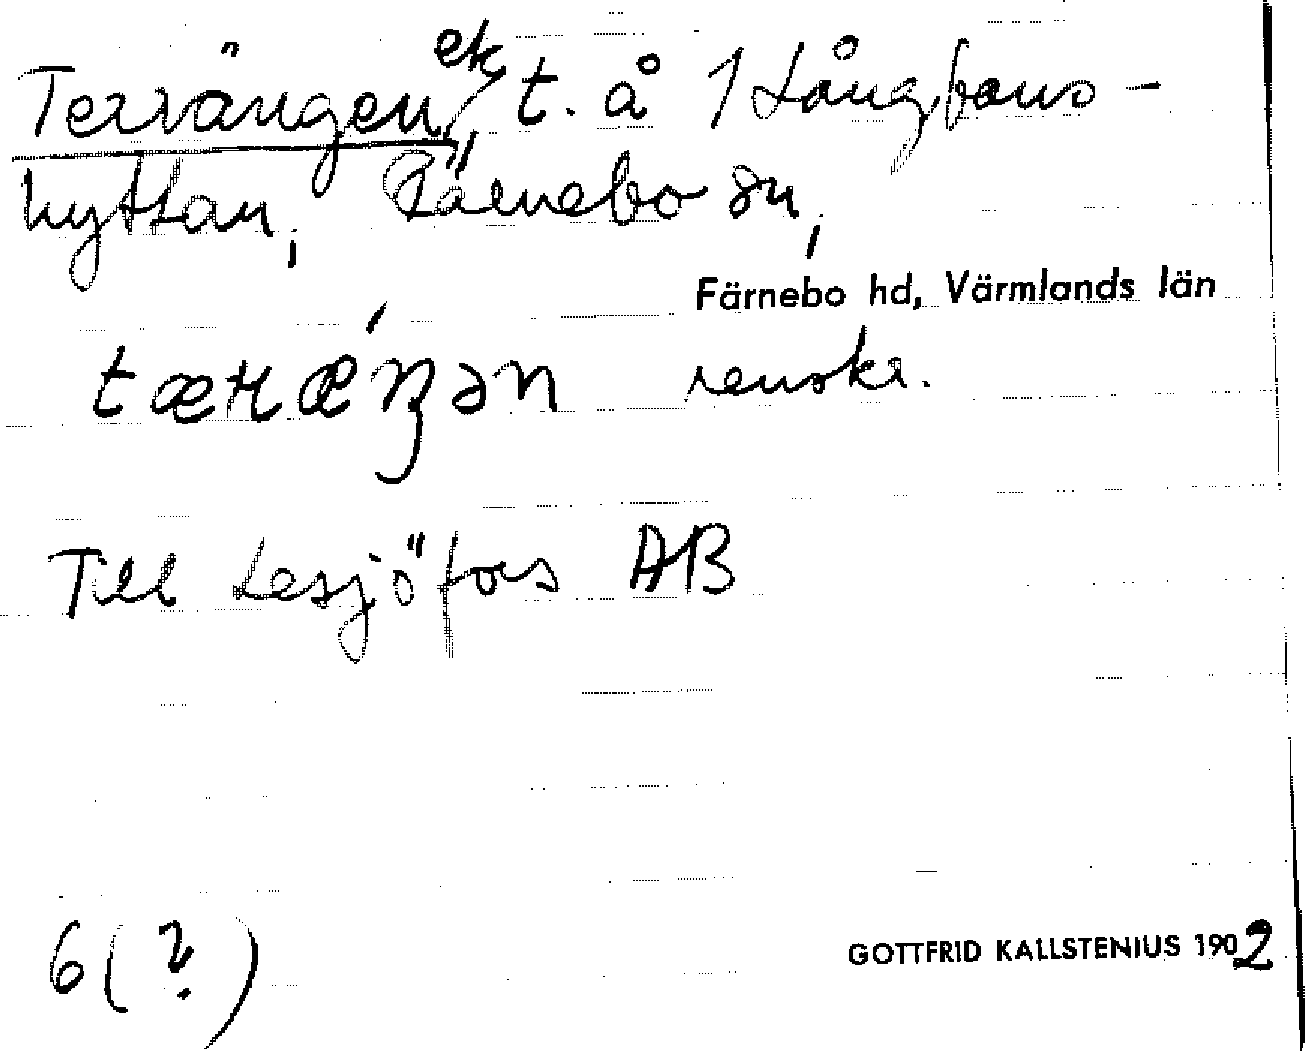 Terrängen, ek, t. å 1 Långbans-
hyttan, Färnebo sn,
Färnebo hd, Värmlands län
tærǽŋən renskr.
Till Lesjöfors AB
6 (?)
GOTTFRID KALLSTENIUS 1902